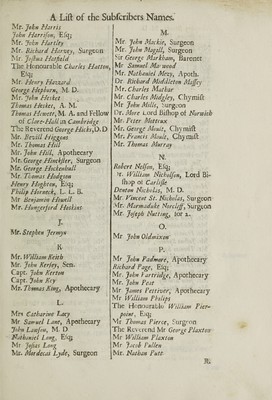 A List of the Subscribers Names.
Mr. John Harris
John Harrison, Esq;
Mr. John Hartley
Mr. Richard Harvey, Surgeon
Mr. Joshua Hatfield
The Honourable Charles Hatton,
Esq;
Mr. Henry Hazzard
George Hepburn, M. D.
Mr. John Herbet
Thomas Hewet, A. M.
Thomas Hewett, M. A. and Fellow
of Clare-Hall in Cambridge
The Reverend George Hicks, D. D
Mr. Bevill Higgons
Mr. Thomas Hill
Mr. John Hill, Apothecary
Mr. George Hinckster, Surgeon
Mr. George Hockenhull
Mr. Thomas Hodgson
Henry Hoghton, Esq;
Philip Horneck, L. L. B.
Mr Benjamin Howell
Mr. Hungerford Hoskins
J.
Mr. Stephen Jermyn
K
Mr. William Keith
Mr. John Kersey, Sen.
Capt. John Kerton
Capt. John Key
Mr. Thomas King, Apothecary
L.
Mrs Catharine Lacy
Mr Samuel Lane, Apothecary
John Lawson, M. D.
Nathaniel Long, Esq;
Mr. Josias Long
Mr. Mordecai Lyde, Surgeon
M.
Mr. John Mackie, Surgeon
Mr. John Magill, Surgeon
Sir George Markham, Baronet
Mr Samuel Marwood
Mr. Nathaniel Mess, Apoth.
Dr Richard Middleton Massey
Mr. Charles Mathar
Mr. Charles Midgley, Chymist
Mr John Mills, Surgeon
Dr. More Lord Bishop of Norwich
Mr. Peter Motteux
Mr. George Moult, Chymist
Mr. Francis Moult, Chymist
Mr. Thomas Murray
N.
Robert Nelson, Esq;
Dr. William Nicholson, Lord Bi-
shop of Carlisle
Denton Nicholas, M. D.
Mr. Vincent St. Nicholas, Surgeon
Mr. Marmaduke Norcliff, Surgeon
Mr. Joseph Nutting, for 2.
O.
Mr. John Oldmixon
P.
Mr. John Padmore, Apothecary
Richard Page, Esq;
Mr. John Partridge, Apothecary
Mr. John Peat
Mr. James Pettiver, Apothecary
Mr. William Philips
The Honourable William Pier-
point, Esq;
Mr. Thomas Pierce, Surgeon
The Reverend Mr George Plaxton
Mr William Plaxton
Mr Jacob Pullen
Mr. Nathan Putt